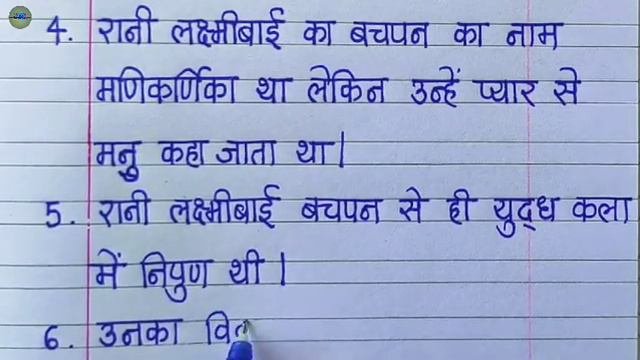 4. रानी लक्ष्मीबाई का बचपन का नाम
मणिकर्णिका था लेकिन उन्हें प्यार से
मनु कहा जाता था|
5. रानी लक्ष्मीबाई बचपन से ही युद्ध कला
में निपुण थी |
6. उनका